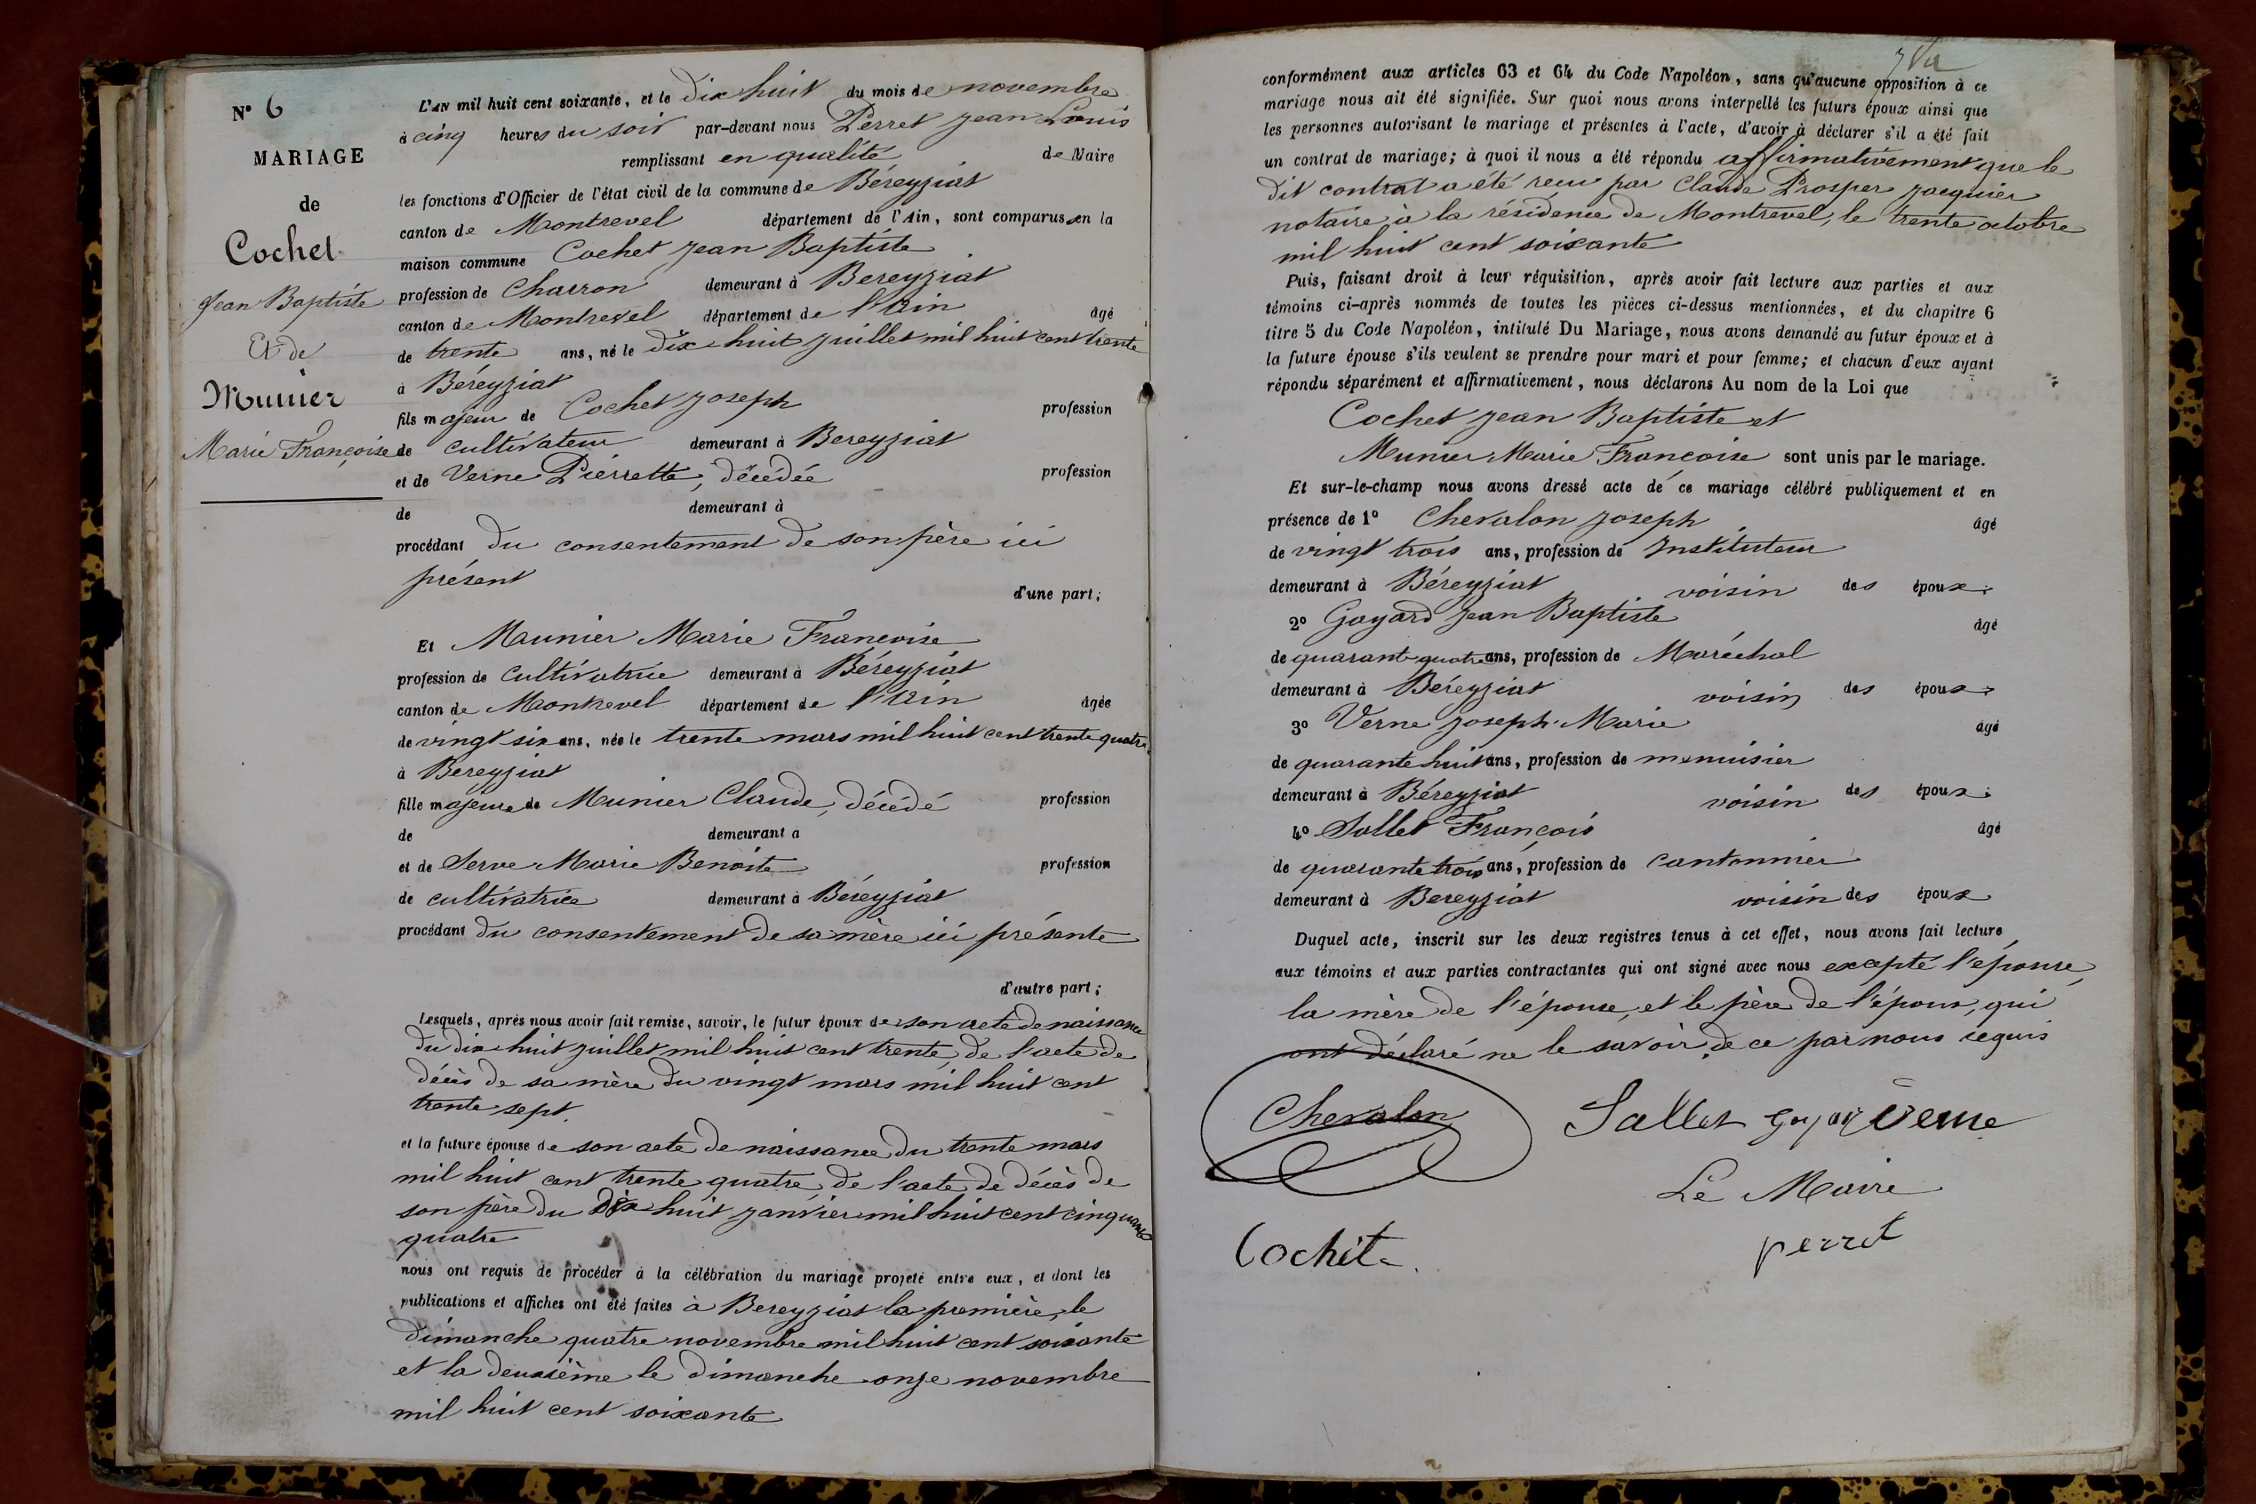 N° 6
MARIAGE
de
Cochet
Jean Baptiste
Et de
Munier
Marie Françoise
L'AN mil huit cent soixante, et le dix huit du mois de novembre
à cinq heures du soir par-devant nous Perret Jean Louis
remplissant en qualité de Maire
les fonctions d'Officier de l'état civil de la commune de Béreyziat
canton de Montrevel département de l'Ain, sont comparus en la
maison commune Cochet Jean Baptiste
profession de Charron demeurant à Bereyziat
canton de Montrevel département de l'Ain âgé
de trente ans, né le dix huit juillet mil huit cent trente
à Béreyziat
fils majeur de Cochet Joseph profession
de cultivateur demeurant à Bereyziat
et de Verne Pierrette, décédée profession
de demeurant à
procédant du consentement de son père ici
présent
d'une part;
Et Munier Marie Françoise
profession de cultivatrice demeurant à Béreyziat
canton de Montrevel département de l'Ain âgée
de vingt six ans, née le trente mars mil huit cent trente quatre
à Bereyziat
fille majeure de Munier Claude, décédé profession
de demeurant a
et de Serve Marie Benoite profession
de cultivatrice demeurant à Béreyziat
procédant du consentement de sa mère ici présente
d'autre part;
Lesquels, après nous avoir fait remise, savoir, le futur époux de son acte de naissance
du dix huit juillet mil huit cent trente, de l'acte de
décès de sa mère du vingt mars mil huit cent
trente sept.
et la future épouse de son acte de naissance du trente mars
mil huit cent trente quatre, de l'acte de décès de
son père du dix huit janvier mil huit cent cinquante
quatre
nous ont requis de procéder à la célébration du mariage projeté entre eux, et dont les
publications et affiches ont été faites à Bereyziat la première, le
dimanche quatre novembre mil huit cent soixante
et la deuxième le dimanche onze novembre
mil huit cent soixante
conformément aux articles 63 et 64 du Code Napoléon, sans qu'aucune opposition à ce
mariage nous ait été signifiée. Sur quoi nous avons interpellé les futurs époux ainsi que
les personnes autorisant le mariage et présentes à l'acte, d'avoir à déclarer s'il a été fait
un contrat de mariage; à quoi il nous a été répondu affirmativement que le
dit contrat a été reçu par Claude Prosper Jacquier
notaire à la résidence de Montrevel, le trente octobre
mil huit cent soixante
Puis, faisant droit à leur réquisition, après avoir fait lecture aux parties et aux
témoins ci-après nommés de toutes les pièces ci-dessus mentionnées, et du chapitre 6
titre 5 du Code Napoléon, intitulé Du Mariage, nous avons demandé au futur époux et à
la future épouse s'ils veulent se prendre pour mari et pour femme; et chacun d'eux ayant
répondu séparément et affirmativement, nous déclarons Au nom de la Loi que
Cochet Jean Baptiste et
Munier Marie Françoise sont unis par le mariage.
Et sur-le-champ nous avons dressé acte de ce mariage célébré publiquement et en
présence de 1° Chevalon Joseph âgé
de vingt trois ans, profession de Instituteur
demeurant à Béreyziat voisin des époux;
2° Goyard Jean Baptiste âgé
de quarante quatre ans, profession de Maréchal
demeurant à Béreyziat voisin des époux;
3° Verne Joseph Marie âgé
de quarante huit ans, profession de menuisier
demeurant à Béreyziat voisin des époux;
4° Sallet François âgé
de quarante trois ans, profession de cantonnier
demeurant à Bereyziat voisin des époux
Duquel acte, inscrit sur les deux registres tenus à cet effet, nous avons fait lecture
aux témoins et aux parties contractantes qui ont signé avec nous excepté l'épouse,
la mère de l'épouse, et le père de l'époux, qui
ont déclaré ne le savoir de ce par nous requis
Chevalon Sallet Goyard Verne
Le Maire
Cochet perret